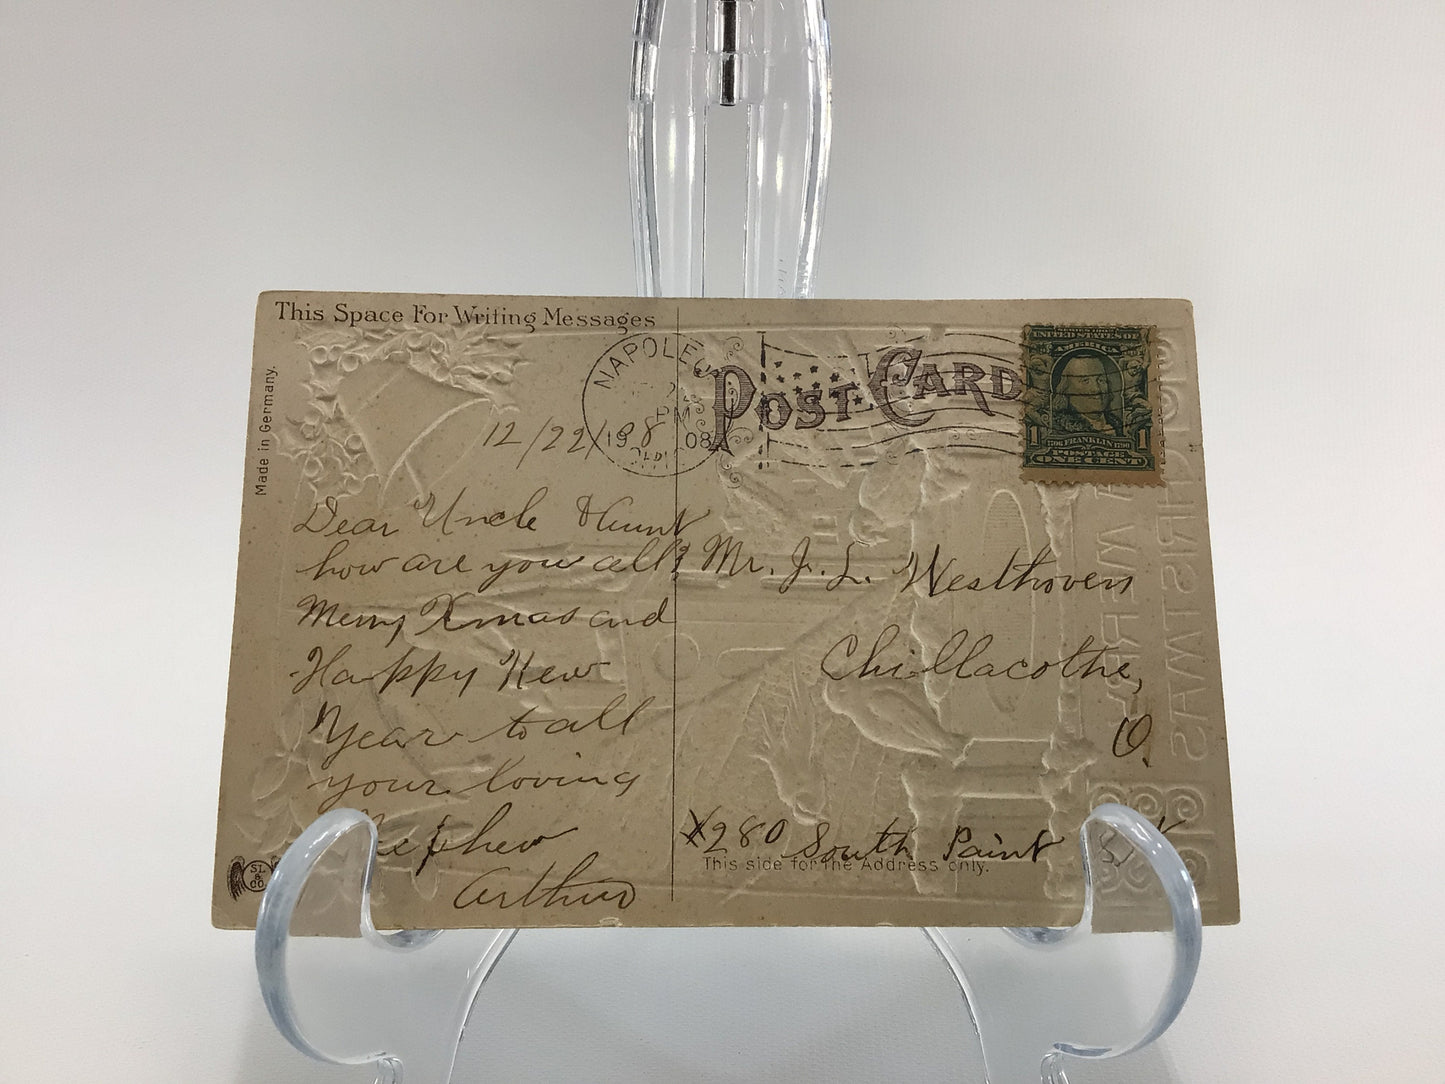 This Space For Writing Messages
Made in Germany.
NAPOLEO
PM
1908
OHIO
POST CARD
UNITED STATES OF
AMERICA
1 1706 FRANKLIN 1790 1
POSTAGE
ONE CENT
12/22/08
Dear Uncle & Aunt
how are you all?
Merry Xmas and
Happy New
Year to all
your loving
Nephew
Arthur
Mr. J. L. Westhoven
Chillacothe,
O.
X280 South Paint
This side for the Address only.
SL
&
CO
CHRISTMAS